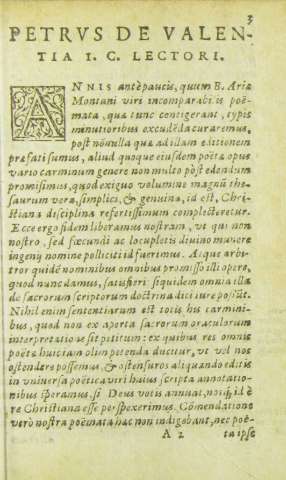 3
PETRVS DE VALEN-
TIA I. C. LECTORI.
ANNIS antè paucis, quum B. Ariæ
Montani viri incomparabilis poë-
mata, quæ tunc contigerant, typis
minutioribus excudēda curaremus,
post nōnulla quæ ad illam editionem
præfati sumus, aliud quoque eiusdem poëtæ opus
vario carminum genere non multo pòst edendum
promisimus, quod exiguo volumine magnū the-
saurum veræ, simplicis, & genuinæ, id est, Chri-
stianæ disciplinæ refertissimum complecteretur.
Ecce ergo fidem liberamus nostram, vt qui non
nostro, sed fœcundi ac locupletis diuino munere
ingenij nomine polliciti id fuerimus. Atque arbi-
tror quidē nominibus omnibus promisso illi opere,
quod nunc damus, satisfieri: siquidem omnia illa
de sacrorum scriptorum doctrina dici iure possūt.
Nihil enim sententiarum est totis his carmini-
bus, quod non ex aperta sacrorum oraculorum
interpretatione sit petitum: ex quibus res omnis
poëtæ huic iam olim petenda ducitur, vt vel nos
ostendere possemus, & ostensuros aliquando editis
in vniuersa poëtica viri huius scripta annotatio-
nibus speramus, si Deus votis annuat, noisq́; id è
re Christiana esse perspexerimus. Cōmendatione
verò nostra poëmata hæc non indigebant, nec poë-
A 2 ta ipse